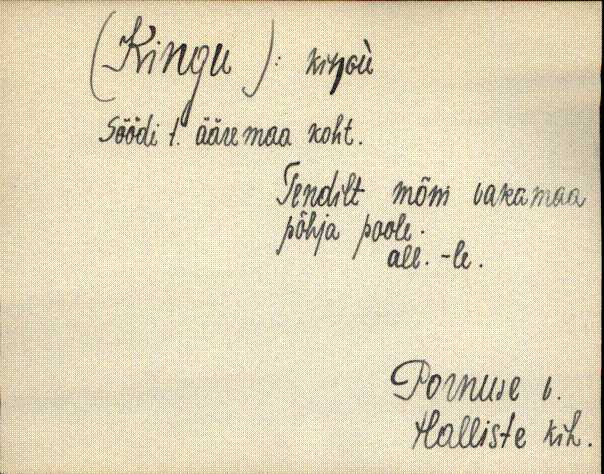 (Kingu): kiŋgù
Söödi t. ääremaa koht.
Tendilt mõni vakamaa
põhja poole.
all. -le.
Pornuse v.
Halliste kih.